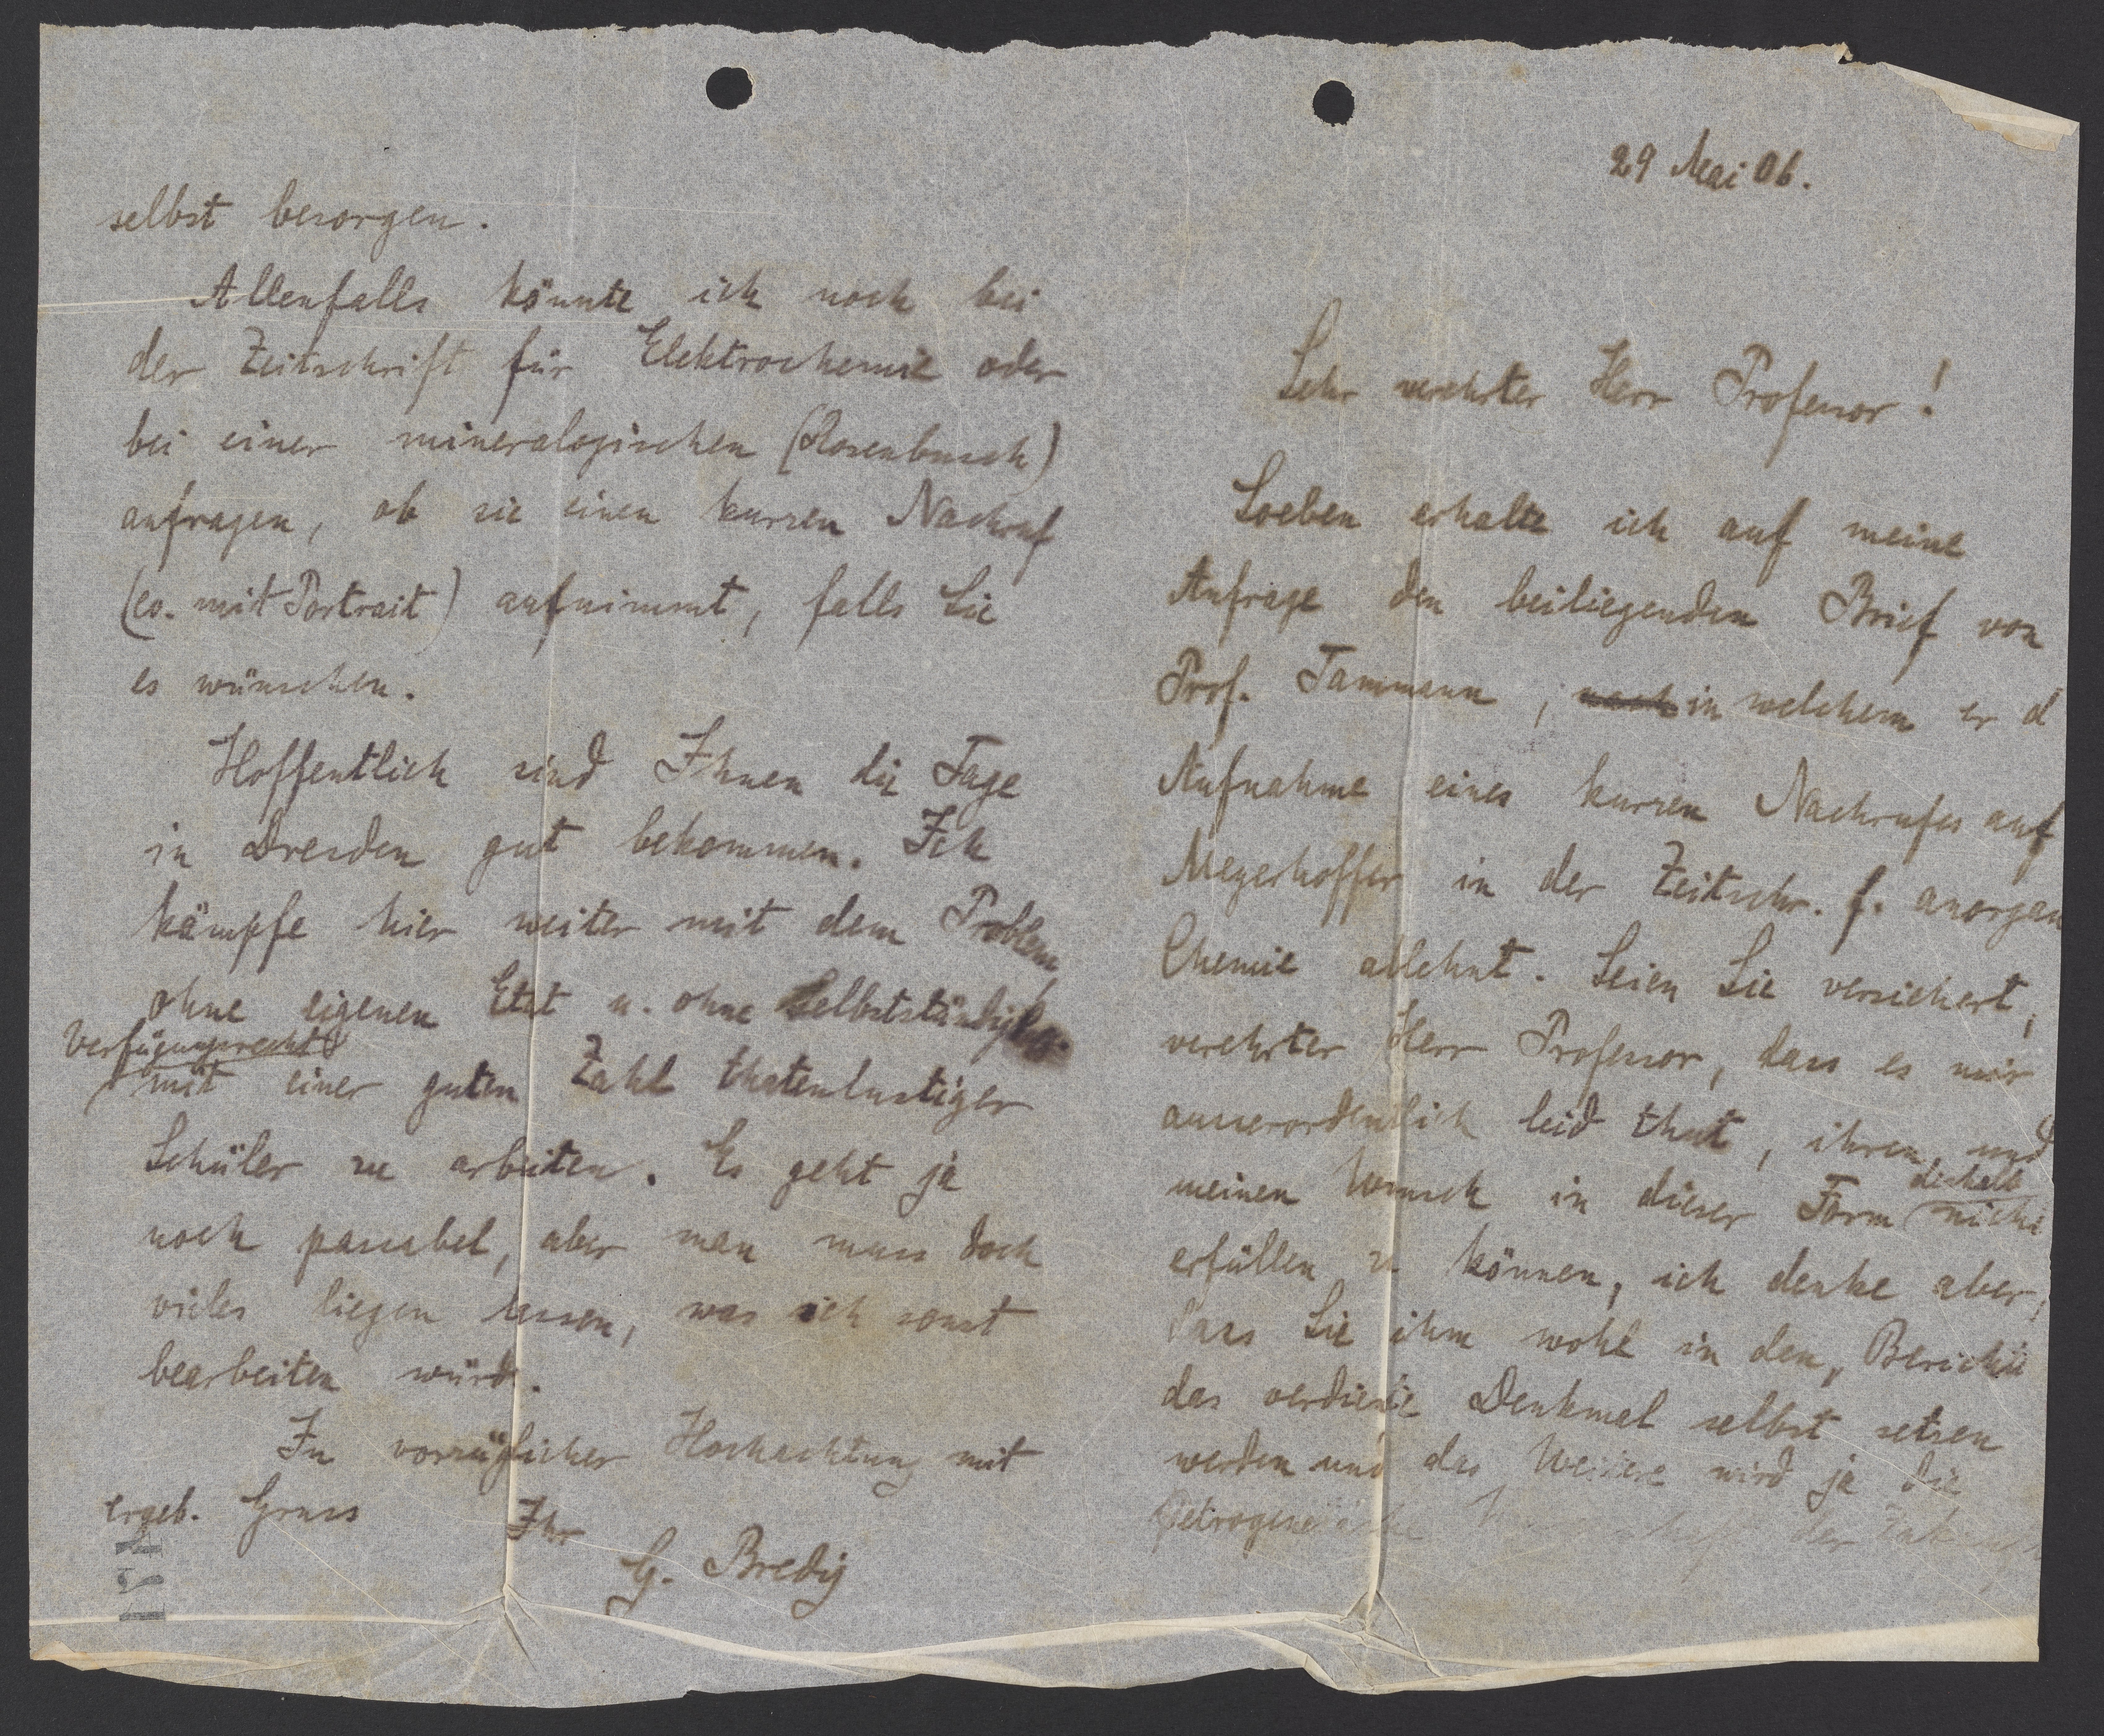 29 Mai 06.
Sehr verehrter Herr Professor!
Soeben erhalte ich auf meine
Anfrage den beiliegenden Brief von
Prof. Tammann, in welchem er d
Aufnahme eines kurzen Nachrufes auf
Meyerhoffer in der Zeitschr. f. anorgan
Chemie ablehnt. Seien Sie versichert,
verehrter Herr Professor, dass es mir
ausserordentlich leid thut, ihren und
deshalb
meinen Wunsch in dieser Form nicht
erfüllen zu können, ich denke aber,
dass Sie ihm wohl in den „Berichte
das verdiente Denkmal selbst setzen
werden und das Weitere wird ja die
der
selbst besorgen.
Allenfalls könnte ich noch bei
der Zeitschrift für Elektrochemie oder
bei einer mineralogischen (Rosenbusch)
anfragen, ob sie einen kurzen Nachruf
(ev. mit Portrait) aufnimmt, falls Sie
es wünschen.
Hoffentlich sind Ihnen die Tage
in Dresden gut bekommen. Ich
kämpfe hier weiter mit dem Problem
ohne eigenen Etat u. ohne
Verfügungsrecht
mit einer guten Zahl thatenlustiger
Schüler zu arbeiten. Es geht ja
noch passabel, aber man muss doch
vieles liegen lassen, was ich sonst
bearbeiten würde.
In vorzüglicher Hochachtung mit
ergeb. Gruss Ihr
G. Bredig